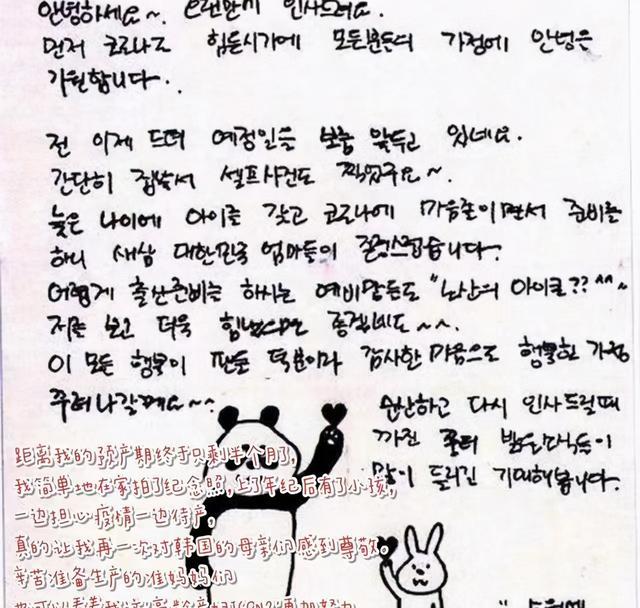 안녕하세요~. 오랜만에 인사드려요.
먼저 코로나로 힘든시기에 모든분들의 가정에 안녕을
기원합니다..
전 이제 드뎌 예정일을 보름 앞두고 있네요.
간단히 집에서 셀프사진도 찍었구요~.
늦은 나이에 아이를 갖고 코로나에 마음졸이면서 준비를
하니 새삼 대한민국 엄마들이 존경스럽습니다.
어렵게 출산준비를 하시는 예비맘들도 "노산의 아이콘?? ^^~
저를 보고 더욱 힘냈으면 좋겠네요~~.
이 모든 행복이 팬들 덕분이라 감사한 마음으로 행복한 가정
꾸려나갈께요~~
순산하고 다시 인사드릴때
까진 좋은 밝은소식들이
많이 들리길 기대해봅니다.
距离我的预产期终于只剩半个月了,
我简单地在家拍了纪念照,上了年纪后有了小孩,
一边担心疫情一边待产,
真的让我再一次对韩国的母亲们感到尊敬。
辛苦准备生产的准妈妈们